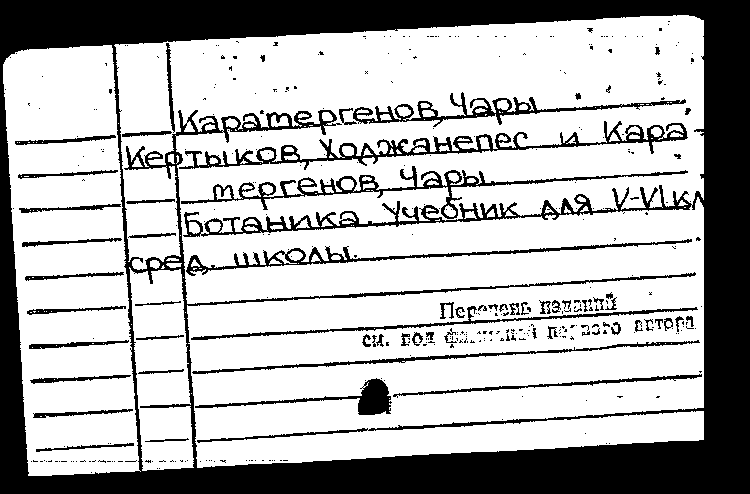 Каратергенов, Чары
Кертыков, Ходжанепес и Кара-
тергенов, Чары.
Ботаника. Учебник для V-VI кл
сред. школы.
Перечень изданий
см. под фамилией первого автора